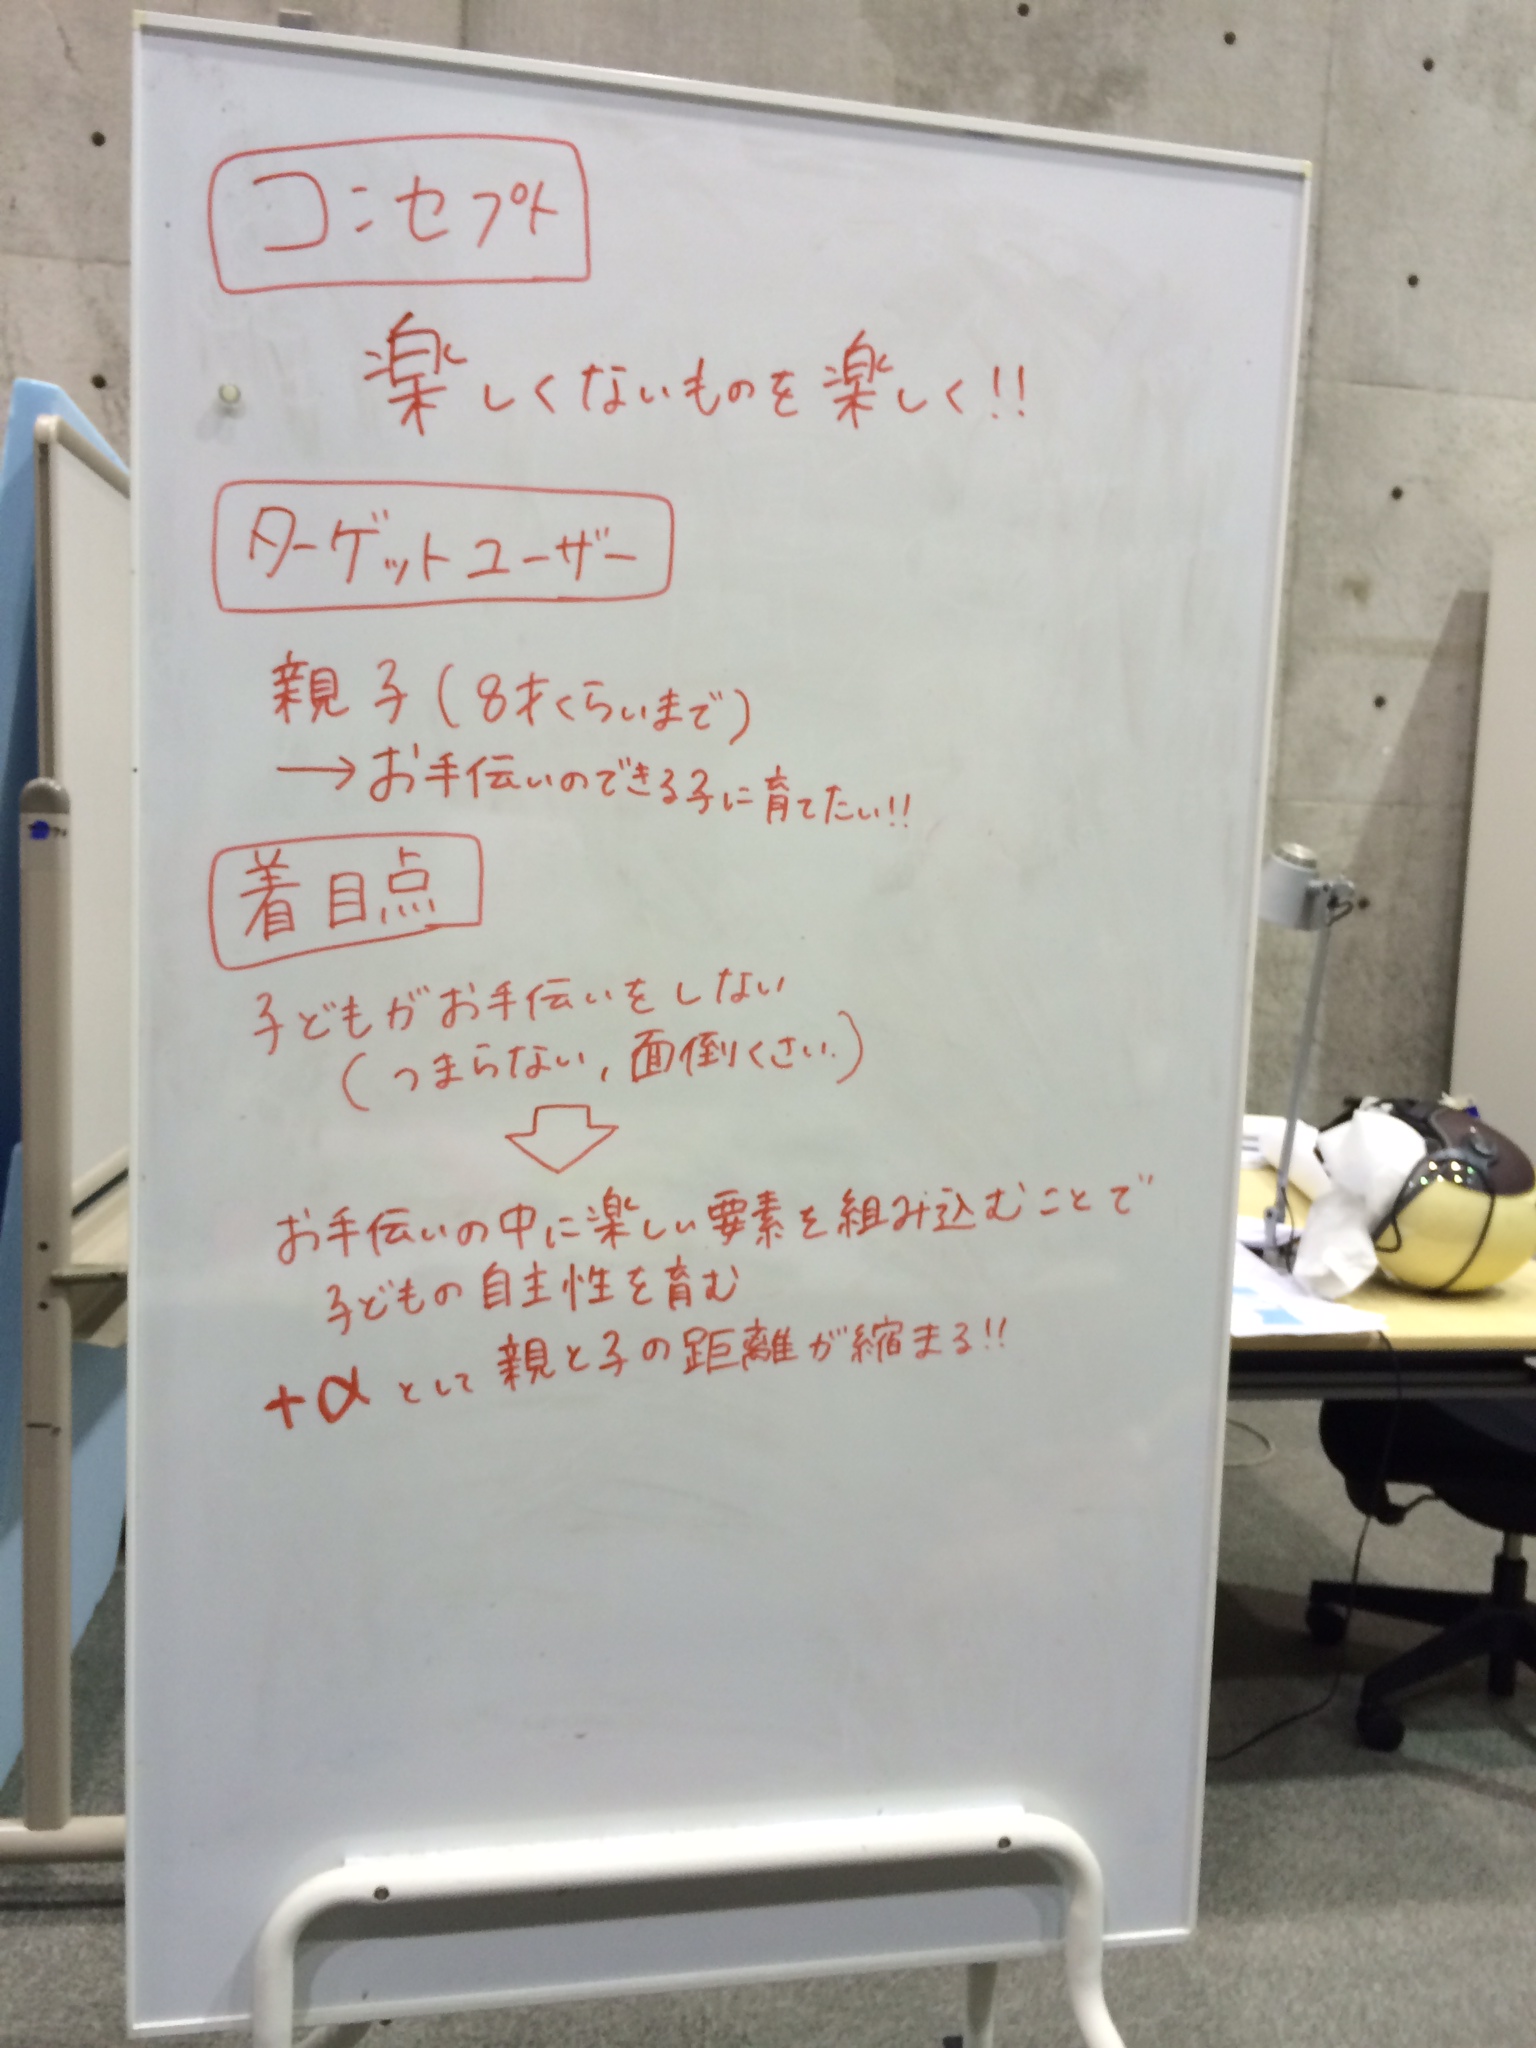 コンセプト
楽しくないものを楽しく!!
ターゲットユーザー
親子(8才くらいまで)
→お手伝いのできる子に育てたい!!
着目点
子どもがお手伝いをしない
(つまらない,面倒くさい.)
お手伝いの中に楽しい要素を組み込むことで
子どもの自主性を育む
+αとして親と子の距離が縮まる!!